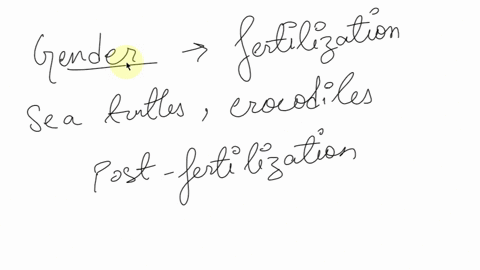 Gender → fertilization
Sea turtles, crocodiles
Post-fertilization